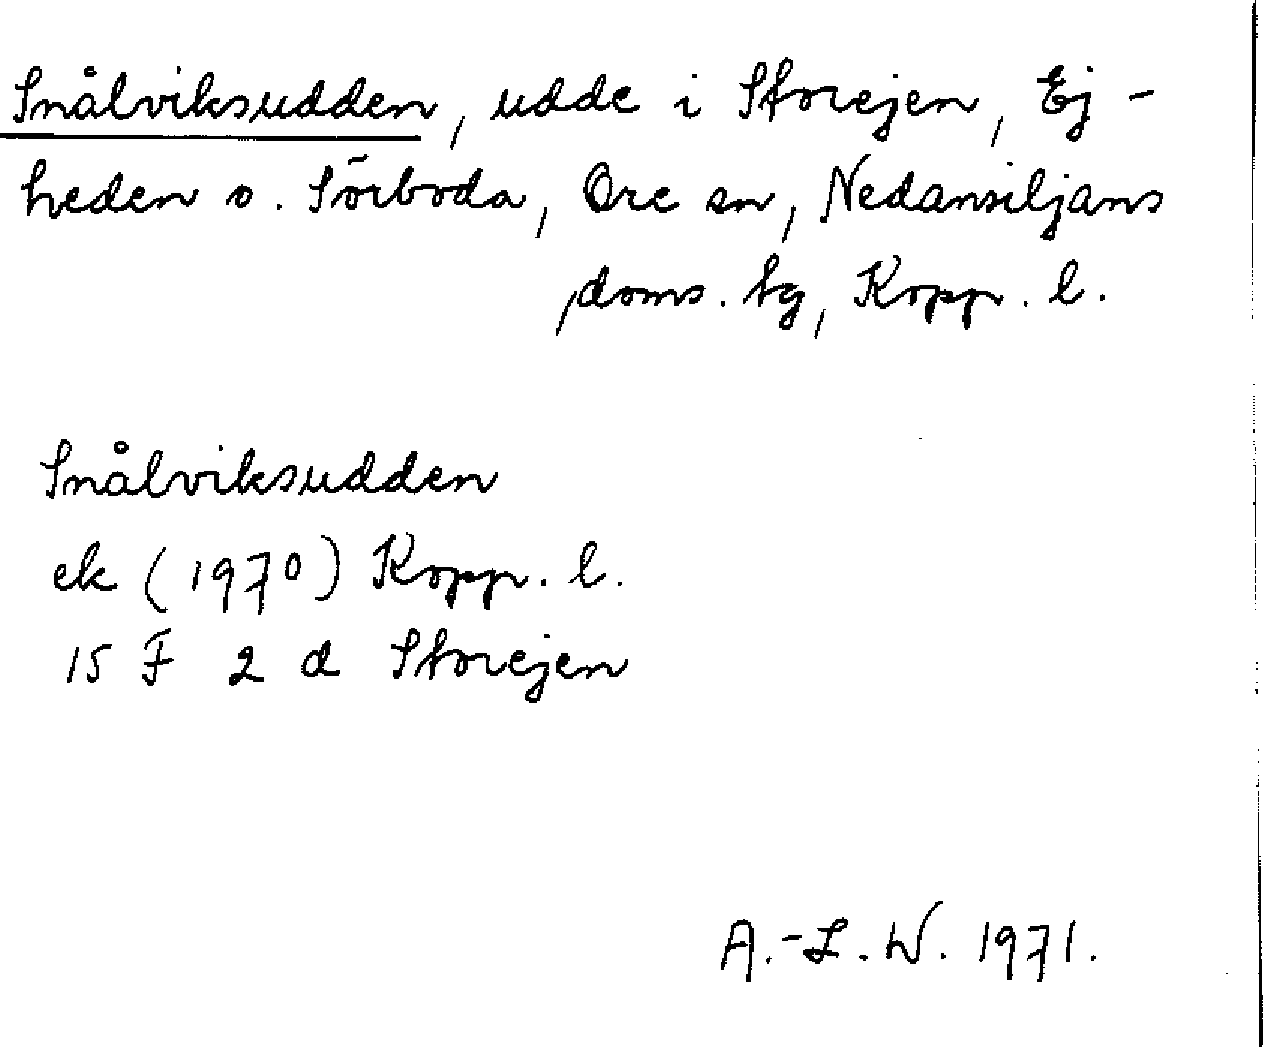 Snålviksudden, udde i Storejen, Ej-
heden o. Sörboda, Ore sn, Nedansiljans
doms. tg, Kopp. l.
Snålviksudden
ek (1970) Kopp. l.
15 F 2 d Storejen
A.-L. W. 1971.